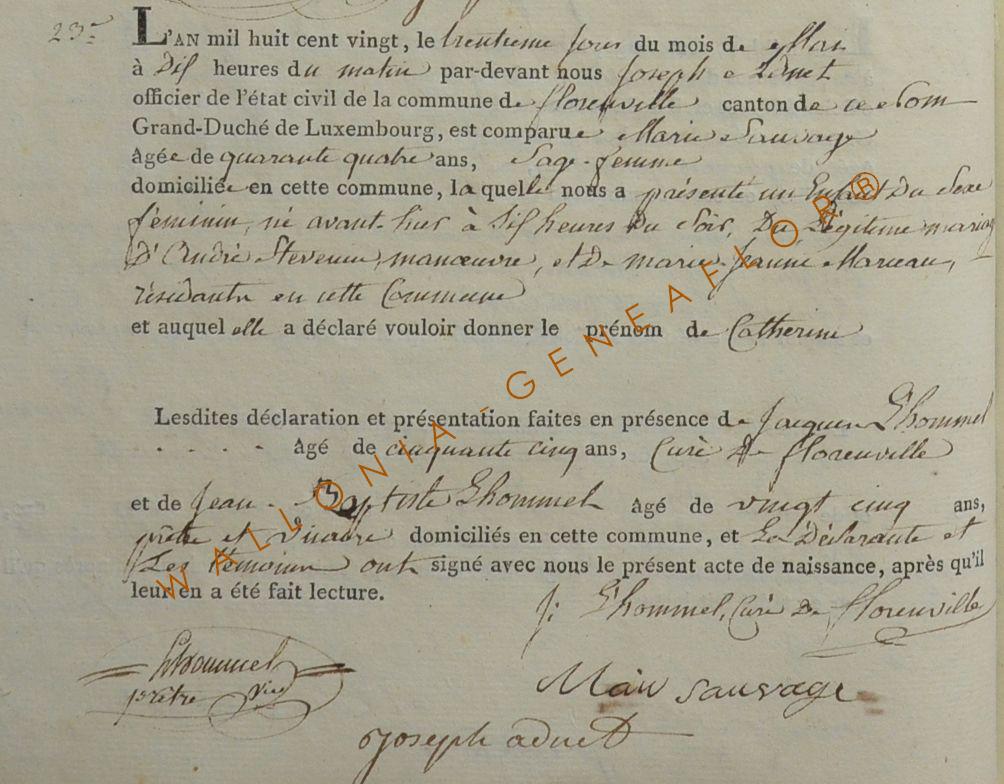 23e
L'AN mil huit cent vingt, le trentieme jour du mois de Mai
à dix heures du matin par-devant nous Joseph Adnet
officier de l'état civil de la commune de florenville canton de ce nom
Grand-Duché de Luxembourg, est comparue Marie Sauvage
âgée de quarante quatre ans, Sage-femme
domiciliée en cette commune, la quelle nous a présenté un Enfant du Sexe
féminin, né avant-hier à dix heures du Soir, Du Légitime mariage
d'André Stevenin, manœuvre, et de marie-Jeanne Marceau,
résidants en cette Commune
et auquel elle a déclaré vouloir donner le prénom de Catherine
Lesdites déclaration et présentation faites en présence de Jacques Lhommel
âgé de cinquante cinq ans, Curé de florenville
et de Jean-Baptiste Lhommel âgé de vingt cinq ans,
prêtre et vicaire domiciliés en cette commune, et La Déclarante et
Les témoins ont signé avec nous le présent acte de naissance, après qu'il
leur en a été fait lecture.
J: Lhommel, Curé de florenville
Lhommel
prêtre vic
Marie sauvage
joseph adnet
WALLONIA-GENEAFLOR®